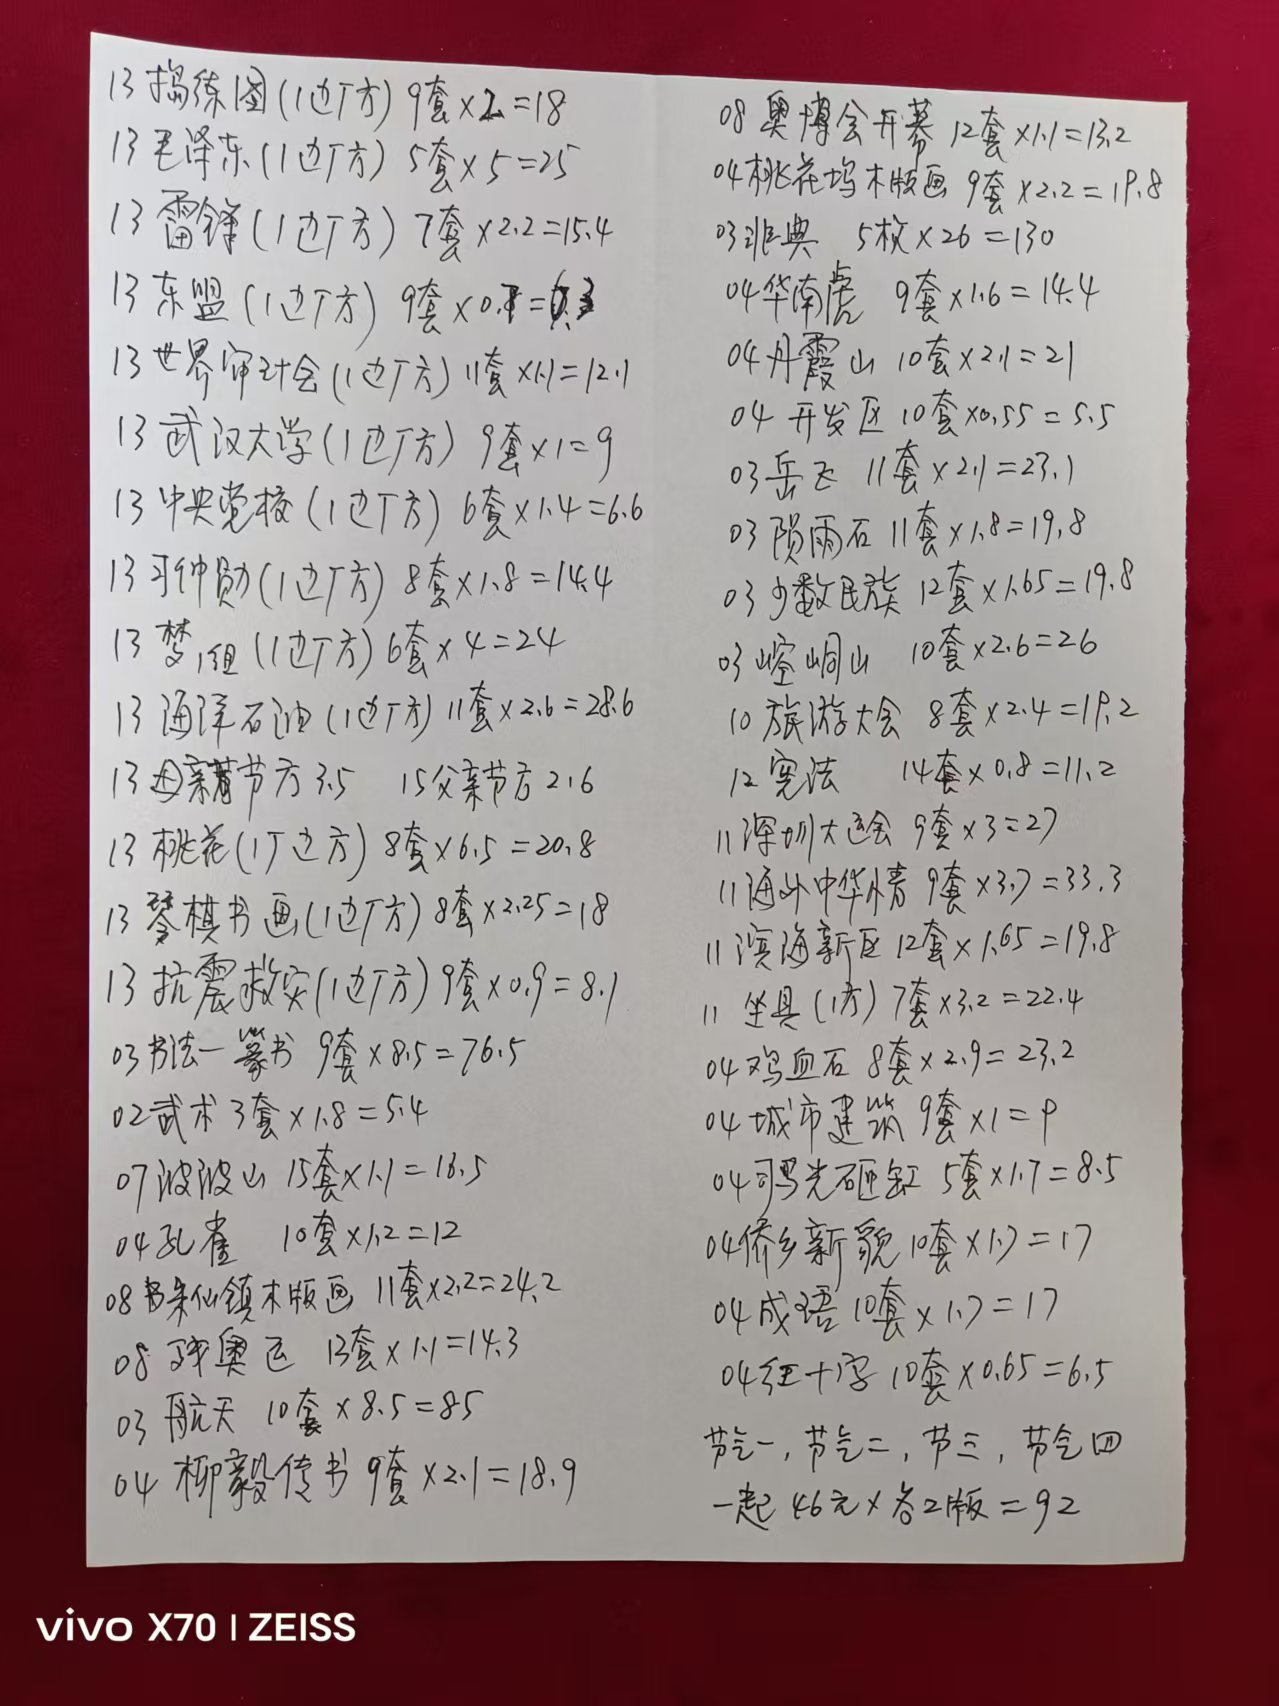 13 捣练图(1边厂方) 9套×2=18
13 毛泽东(1边厂方) 5套×5=25
13 雷锋(1边厂方) 7套×2.2=15.4
13 东盟(1边厂方) 9套×0.7=6.3
13 世界审计会(1边厂方) 11套×1.1=12.1
13 武汉大学(1边厂方) 9套×1=9
13 中央党校(1边厂方) 6套×1.4=6.6
13 习仲勋(1边厂方) 8套×1.8=14.4
13 梦1组(1边厂方) 6套×4=24
13 海洋石油(1边厂方) 11套×2.6=28.6
13 母亲节方 3.5 15父亲节方 2.6
13 桃花(1厂边方) 8套×6.5=20.8
13 琴棋书画(1边厂方) 8套×2.25=18
13 抗震救灾(1边厂方) 9套×0.9=8.1
03书法一篆书 9套×8.5=76.5
02武术 3套×1.8=5.4
07波波山 15套×1.1=16.5
04孔雀 10套×1.2=12
08朱仙镇木版画 11套×2.2=24.2
08 残奥运 13套×1.1=14.3
03 航天 10套×8.5=85
04 柳毅传书 9套×2.1=18.9
08 奥博会开幕 12套×1.1=13.2
04桃花坞木版画 9套×2.2=19.8
03非典 5枚×26=130
04华南虎 9套×1.6=14.4
04丹霞山 10套×2.1=21
04 开发区 10套×0.55=5.5
03岳飞 11套×2.1=23.1
03 陨雨石 11套×1.8=19.8
03少数民族 12套×1.65=19.8
03崆峒山 10套×2.6=26
10 旅游大会 8套×2.4=19.2
12宪法 14套×0.8=11.2
11深圳大运会 9套×3=27
11海外中华情 9套×3.7=33.3
11滨海新区 12套×1.65=19.8
11 坐具(1方) 7套×3.2=22.4
04鸡血石 8套×2.9=23.2
04城市建筑 9套×1=9
04司马光砸缸 5套×1.7=8.5
04侨乡新貌 10套×1.7=17
04成语 10套×1.7=17
04红十字 10套×0.65=6.5
节气一,节气二,节三,节气四
一起 46元×各2版=92
vivo X70 | ZEISS